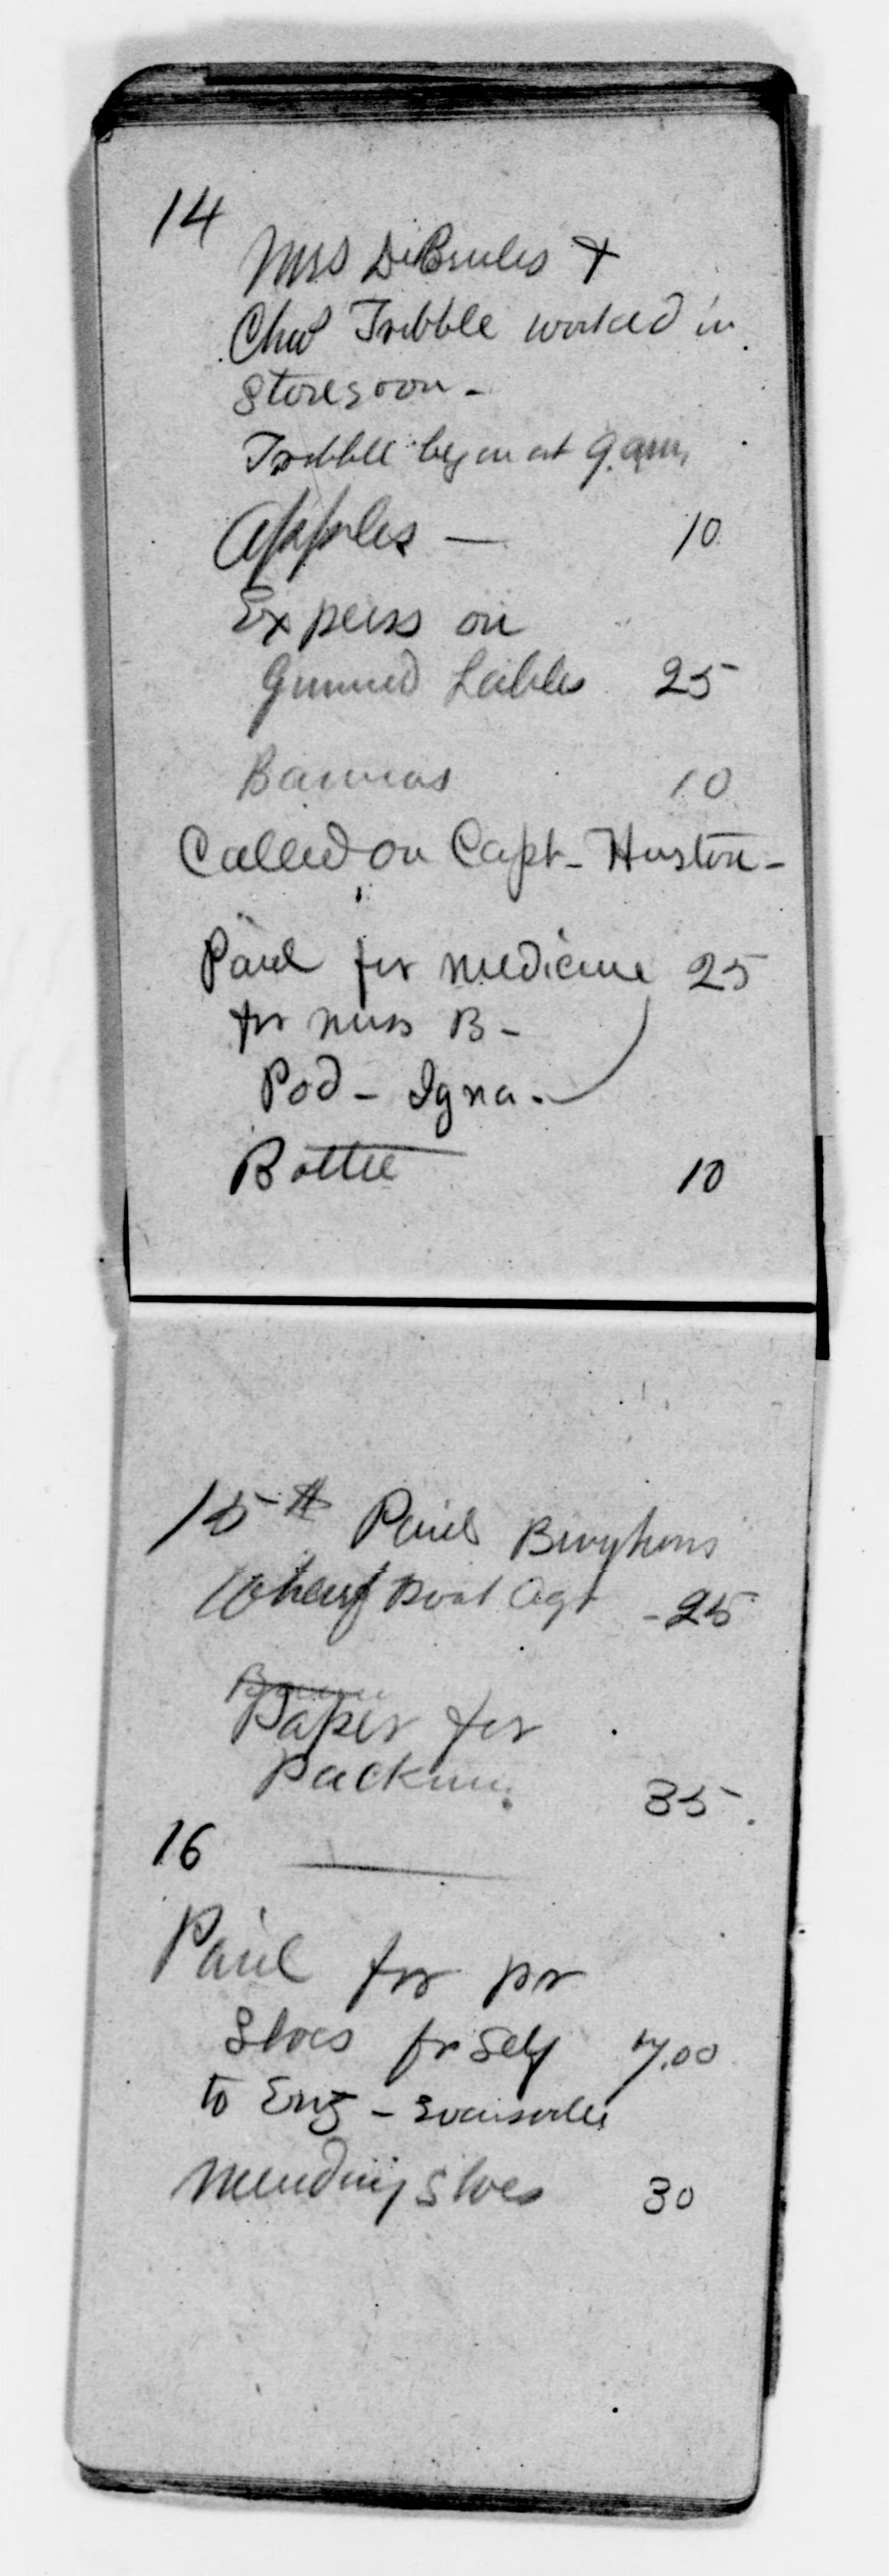 14
Mrs DeBrules +
Chas Tribble worked in
Storeroom -
Tribble began at 9. am,
Apples — 10
Express on
Gummed Lables 25
Bananas 10
Called on Capt - Huston -
Paid for medicine 25
for miss B -
Pod - Igna.
Bottle 10
15th Paid
Wharf Boat Agt - 25
Paper for
Packing 35.
16
Paid for pr
Shoes for Self 7.00
to Eng - Evansville
Mending Shoes 30